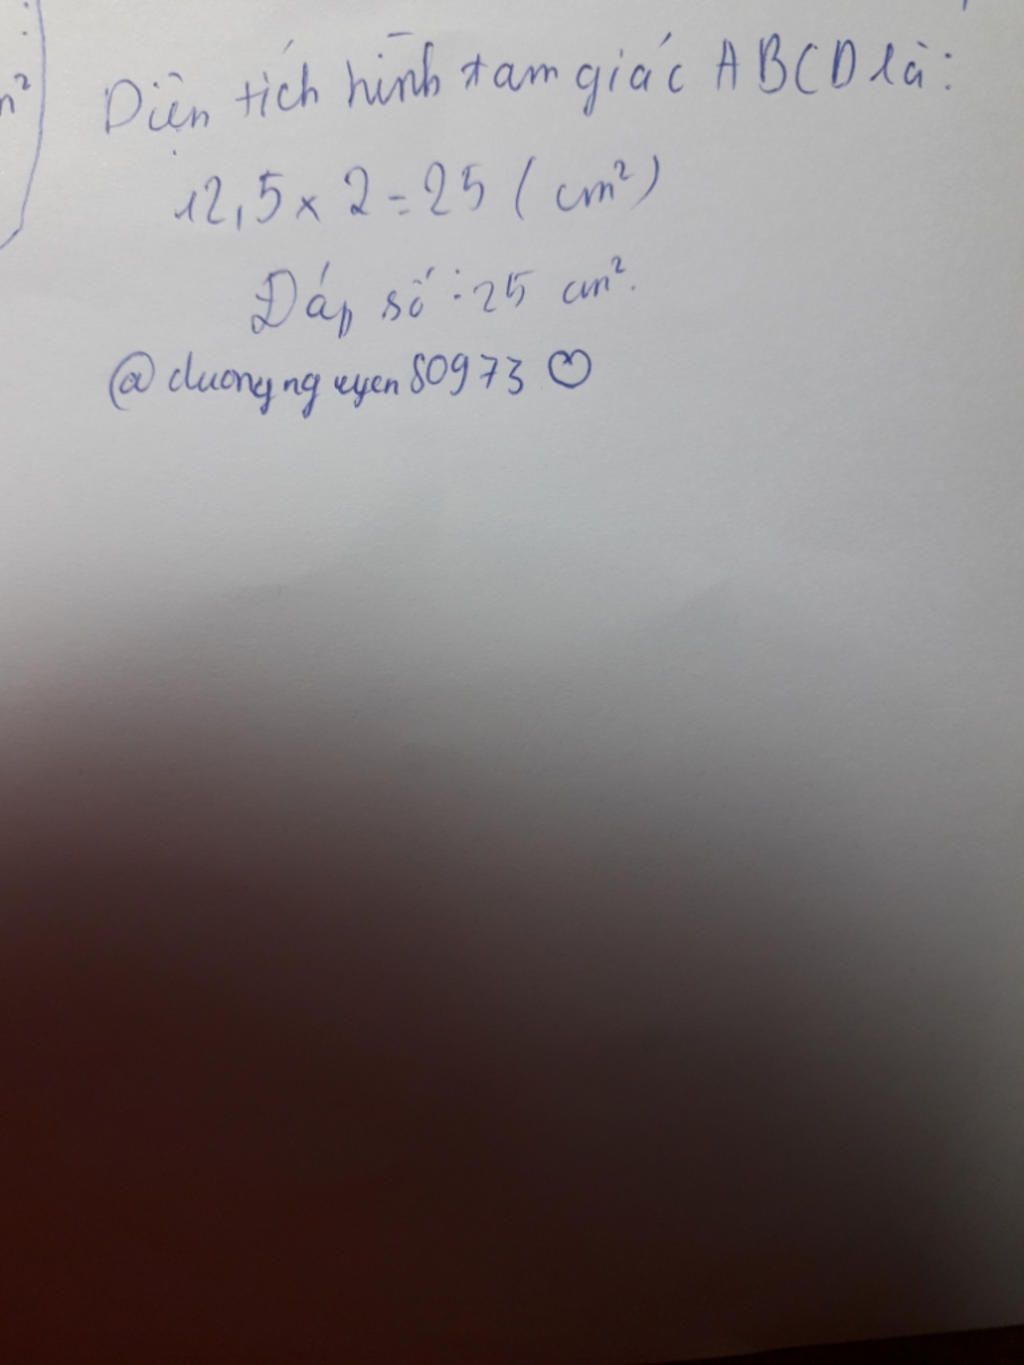 m²
Diện tích hình tam giác ABCD là:
12,5 x 2 = 25 (cm²)
Đáp số: 25 cm².
@duongnguyen80973 ♡